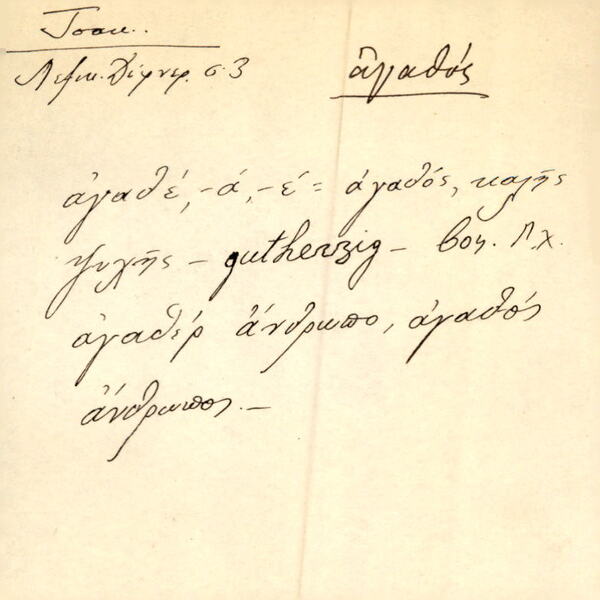 Τσακ.
Λεξικ. Δέφνερ. σ. 3
ἀγαθός
ἀγαθέ, -ά, -έ = ἀγαθός, καλῆς
ψυχῆς - gutherzig - Π.χ.
ἀγαθέρ ἄνθρωπο, ἀγαθός
ἄνθρωπος. -